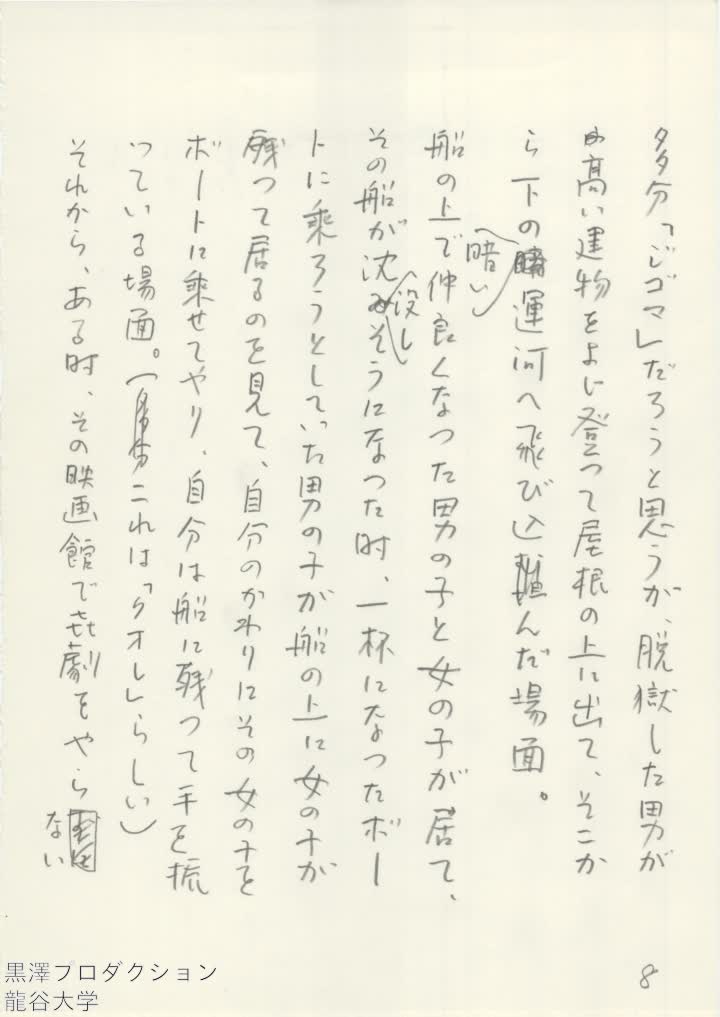 多分「ジゴマ」だろうと思うが、脱獄した男が
高い建物をよぢ登つて屋根の上に出て、そこか
ら下の(暗い)運河へ飛び込んだ場面。
船の上で仲良くなつた男の子と女の子が居て、
その船が沈没しそうになつた時、一杯になつたボー
トに乗ろうとしていた男の子が船の上に女の子が
残つて居るのを見て、自分のかわりにその女の子を
ボートに乗せてやり、自分は船に残つて手を振
っている場面。(これは「クオレ」らしい)
それから、ある時、その映画館で㐂劇をやら
ない
8
黒澤プロダクション
龍谷大学